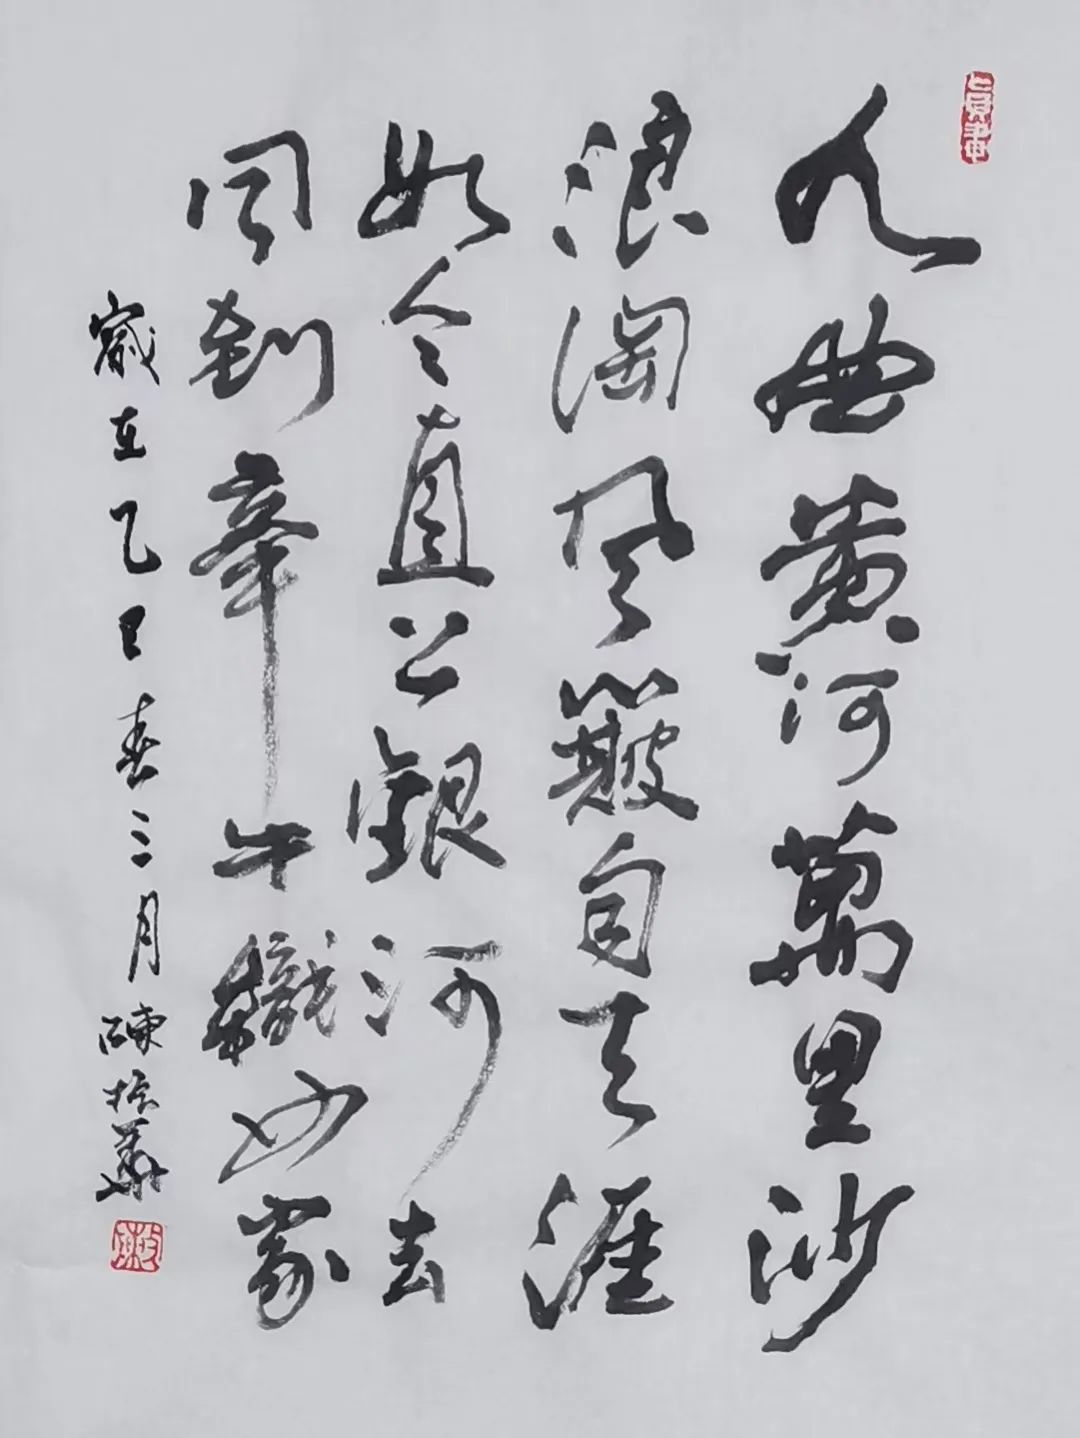 九曲黄河萬里沙
浪淘风簸自天涯
如今直上銀河去
同到牽牛織女家
歲在乙巳春三月陳華